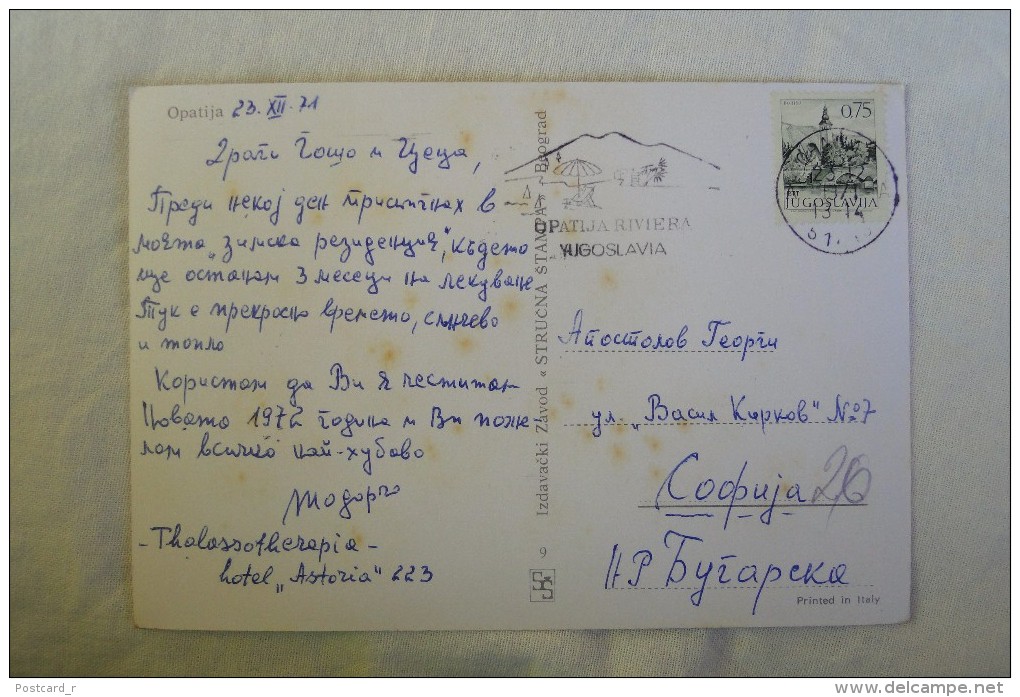 Opatija 23. XII. 71
Драги Гошо и Цеца,
Преди некой ден пристигнах в
моята „зимска резиденция", където
ще останам 3 месеци на лекуване
Тук е прекрасно времето, слънчево
и топло
Користам да Ви я честитам
Новата 1972 година и Ви поже
лам всичко най-хубаво
Тодорчо
- Thalassotherapia -
hotel „Astoria" 223
9 Izdavački Zavod « STRUČNA ŠTAMPA » - Beograd
OPATIJA RIVIERA
YUGOSLAVIA
0,75
JUGOSLAVIJA
13-14
Апостолов Георги
ул. „Васил Кирков" № 7
Софија 26
НР Бугарска
Printed in Italy
Postcard_r
www.delcampe.net